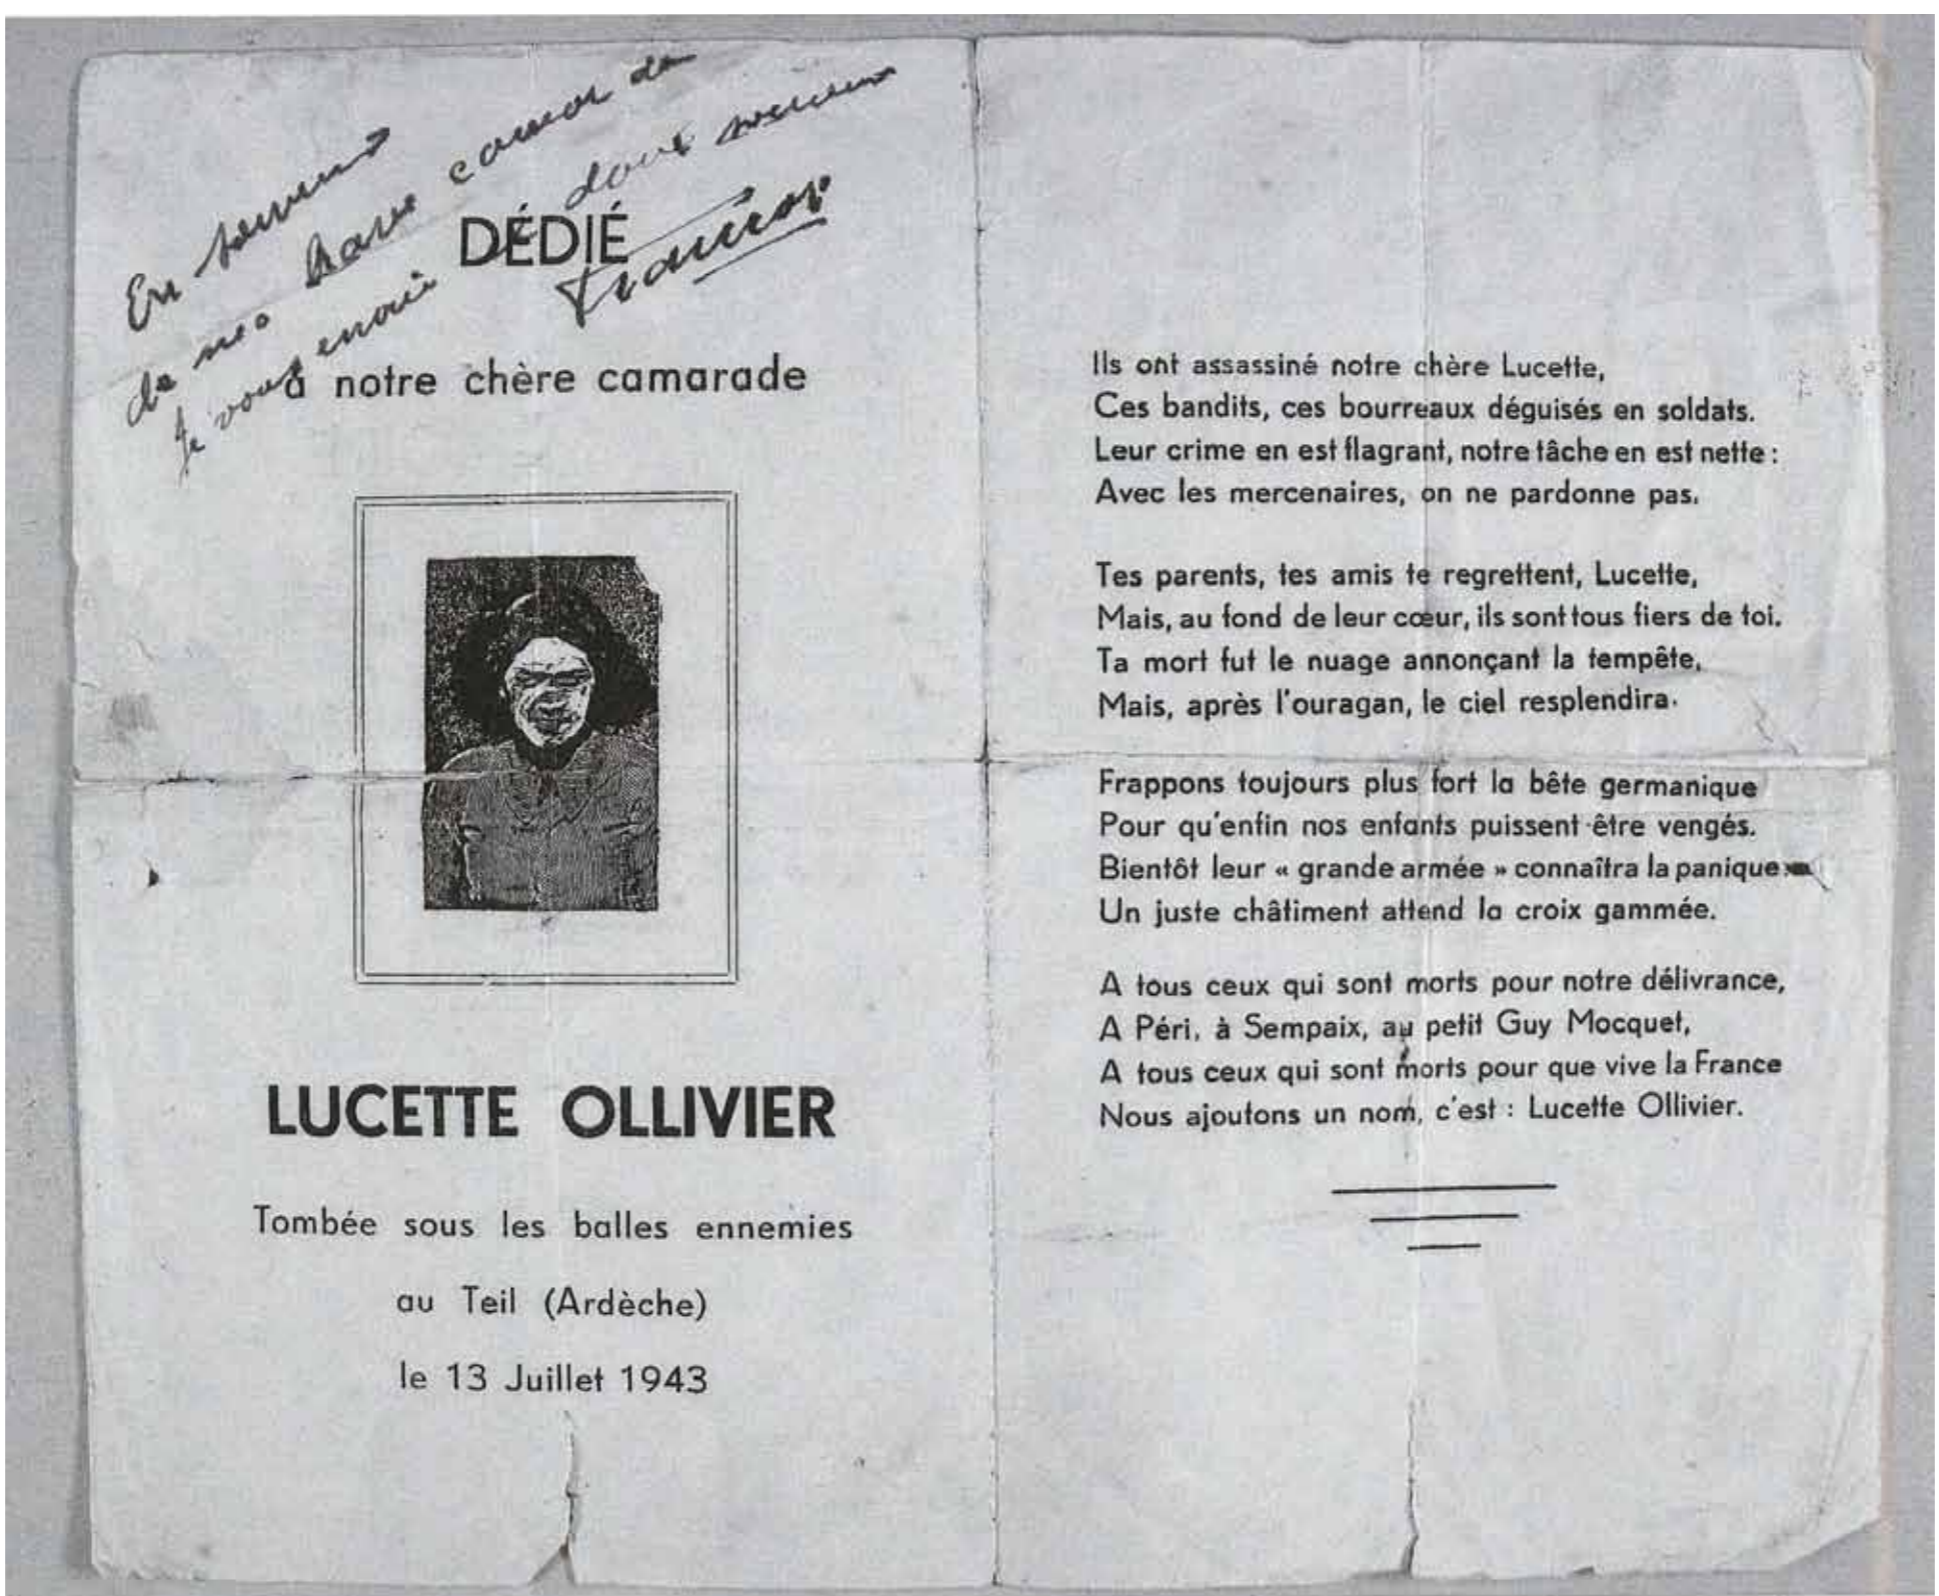 En souvenir
de mes braves camarades
je vous envoie ce doux souvenir
DÉDIÉ
à notre chère camarade
LUCETTE OLLIVIER
Tombée sous les balles ennemies
au Teil (Ardèche)
le 13 Juillet 1943
Ils ont assassiné notre chère Lucette,
Ces bandits, ces bourreaux déguisés en soldats.
Leur crime en est flagrant, notre tâche en est nette :
Avec les mercenaires, on ne pardonne pas.
Tes parents, tes amis te regrettent, Lucette,
Mais, au fond de leur cœur, ils sont tous fiers de toi.
Ta mort fut le nuage annonçant la tempête,
Mais, après l'ouragan, le ciel resplendira.
Frappons toujours plus fort la bête germanique
Pour qu'enfin nos enfants puissent être vengés.
Bientôt leur « grande armée » connaîtra la panique
Un juste châtiment attend la croix gammée.
A tous ceux qui sont morts pour notre délivrance,
A Péri, à Sempaix, au petit Guy Mocquet,
A tous ceux qui sont morts pour que vive la France
Nous ajoutons un nom, c'est : Lucette Ollivier.